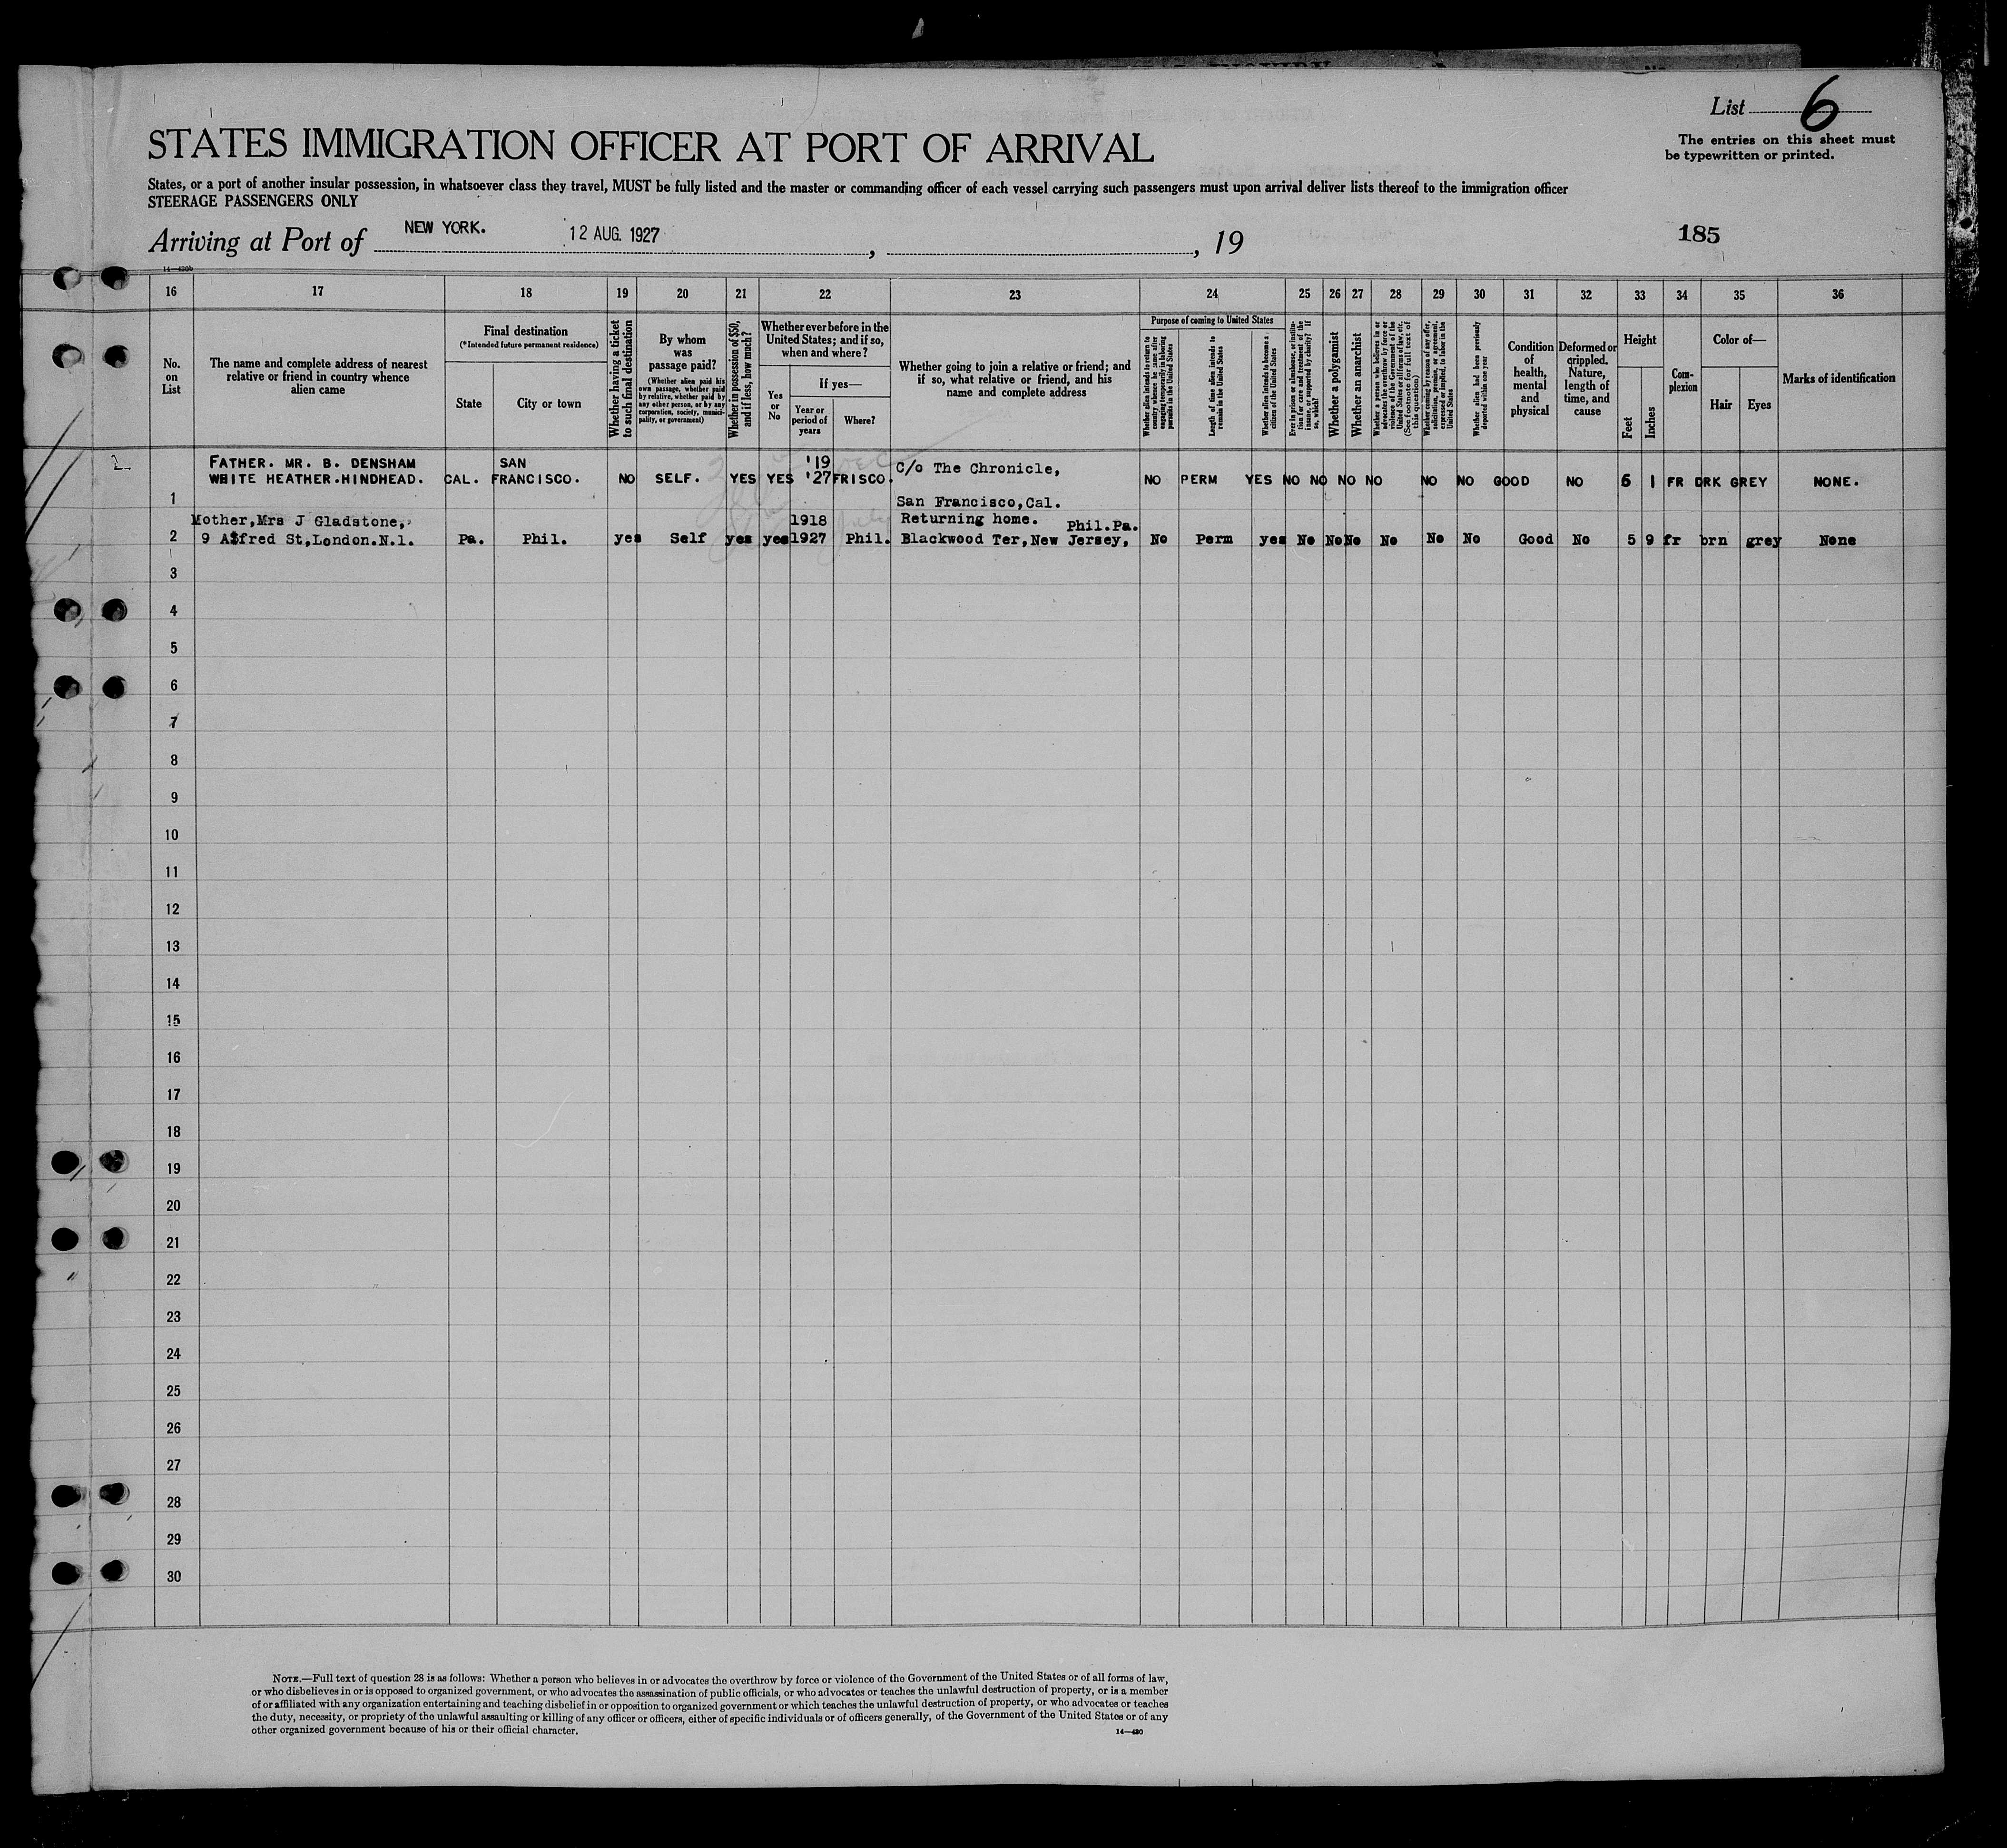 List 6
The entries on this sheet must
be typewritten or printed.
STATES IMMIGRATION OFFICER AT PORT OF ARRIVAL
States, or a port of another insular possession, in whatsoever class they travel, MUST be fully listed and the master or commanding officer of each vessel carrying such passengers must upon arrival deliver lists thereof to the immigration officer
STEERAGE PASSENGERS ONLY
Arriving at Port of NEW YORK. 12 AUG. 1927, , 19
185
14—430b
16 17 18 19 20 21 22 23 24 25 26 27 28 29 30 31 32 33 34 35 36
No.
on
List
The name and complete address of nearest
relative or friend in country whence
alien came
Final destination
(*Intended future permanent residence)
State
City or town
Whether having a ticket
to such final destination
By whom
was
passage paid?
(Whether alien paid his
own passage, whether paid
by relative, whether paid by
any other person, or by any
corporation, society, munici-
pality, or government)
Whether in possession of $50,
and if less, how much?
Whether ever before in the
United States; and if so,
when and where?
Yes
or
No
If yes—
Year or
period of
years
Where?
Whether going to join a relative or friend; and
if so, what relative or friend, and his
name and complete address
Purpose of coming to United States
Whether alien intends to return to
country whence he came after
engaging temporarily in laboring
pursuits in the United States
Length of time alien intends to
remain in the United States
Whether alien intends to become a
citizen of the United States
Ever in prison or almshouse, or institu-
tion for care and treatment of the
insane, or supported by charity? If
so, which?
Whether a polygamist
Whether an anarchist
Whether a person who believes in or
advocates the overthrow by force or
violence of the Government of the
United States or all forms of law, etc.
(See footnote for full text of
this question)
Whether coming by reason of any offer,
solicitation, promise, or agreement,
expressed or implied, to labor in the
United States
Whether alien had been previously
deported within one year
Condition
of
health,
mental
and
physical
Deformed or
crippled.
Nature,
length of
time, and
cause
Height
Feet
Inches
Com-
plexion
Color of—
Hair
Eyes
Marks of identification
FATHER. MR. B. DENSHAM SAN '19 C/o The Chronicle,
WHITE HEATHER.HINDHEAD. CAL. FRANCISCO. NO SELF. YES YES '27 FRISCO. NO PERM YES NO NO NO NO NO NO GOOD NO 6 1 FR DRK GREY NONE.
1 San Francisco,Cal.
Mother,Mrs J Gladstone, 1918 Returning home. Phil.Pa.
2 9 Alfred St,London.N.1. Pa. Phil. yes Self yes yes 1927 Phil. Blackwood Ter,New Jersey, No Perm yes No No No No No No Good No 5 9 fr brn grey None
3
4
5
6
7
8
9
10
11
12
13
14
15
16
17
18
19
20
21
22
23
24
25
26
27
28
29
30
NOTE.—Full text of question 28 is as follows: Whether a person who believes in or advocates the overthrow by force or violence of the Government of the United States or of all forms of law,
or who disbelieves in or is opposed to organized government, or who advocates the assassination of public officials, or who advocates or teaches the unlawful destruction of property, or is a member
of or affiliated with any organization entertaining and teaching disbelief in or opposition to organized government or which teaches the unlawful destruction of property, or who advocates or teaches
the duty, necessity, or propriety of the unlawful assaulting or killing of any officer or officers, either of specific individuals or of officers generally, of the Government of the United States or of any
other organized government because of his or their official character.
14—430